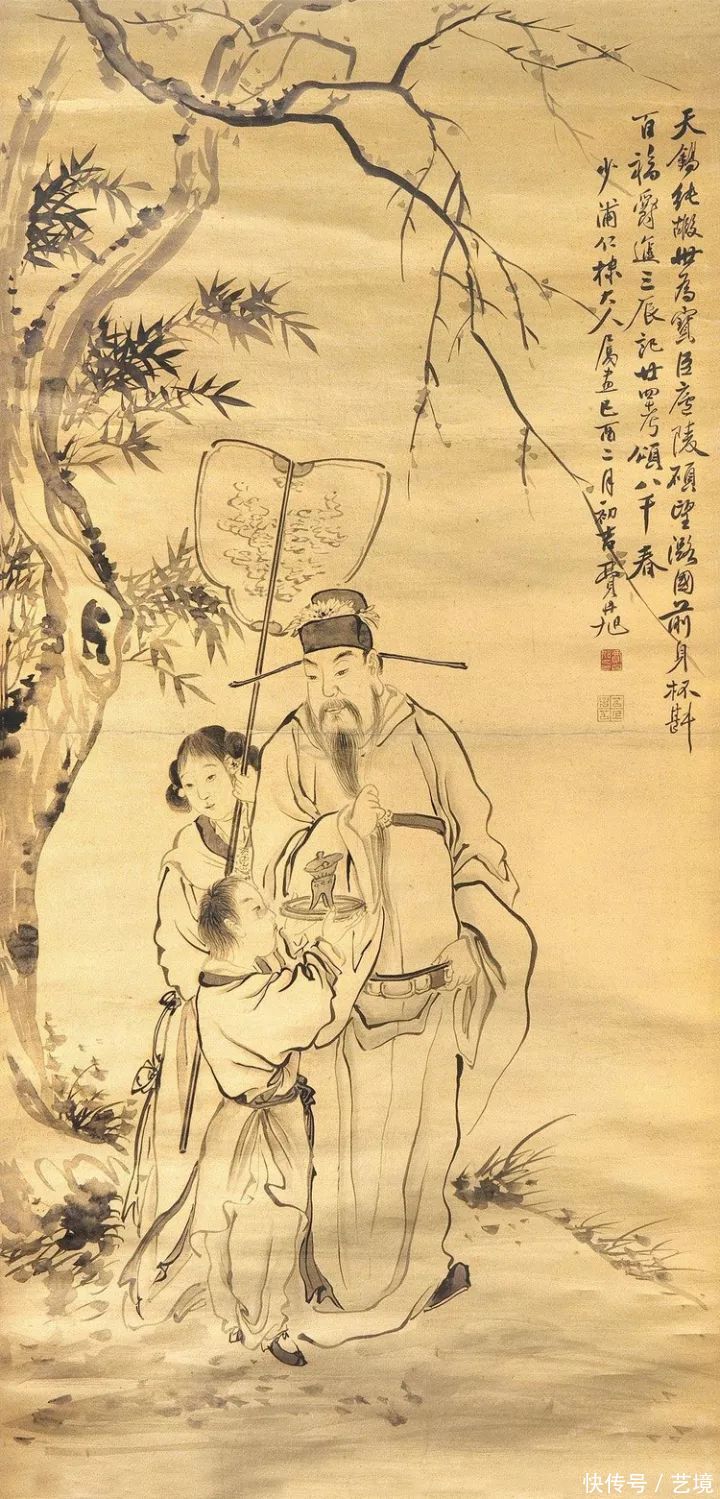 天錫純嘏世為寶臣廬陵碩望潞國前身杯斟
百福爵進三辰記廿四考頌八千春
少浦仁棣大人屬畫己酉二月初吉費丹旭
快传号/艺境